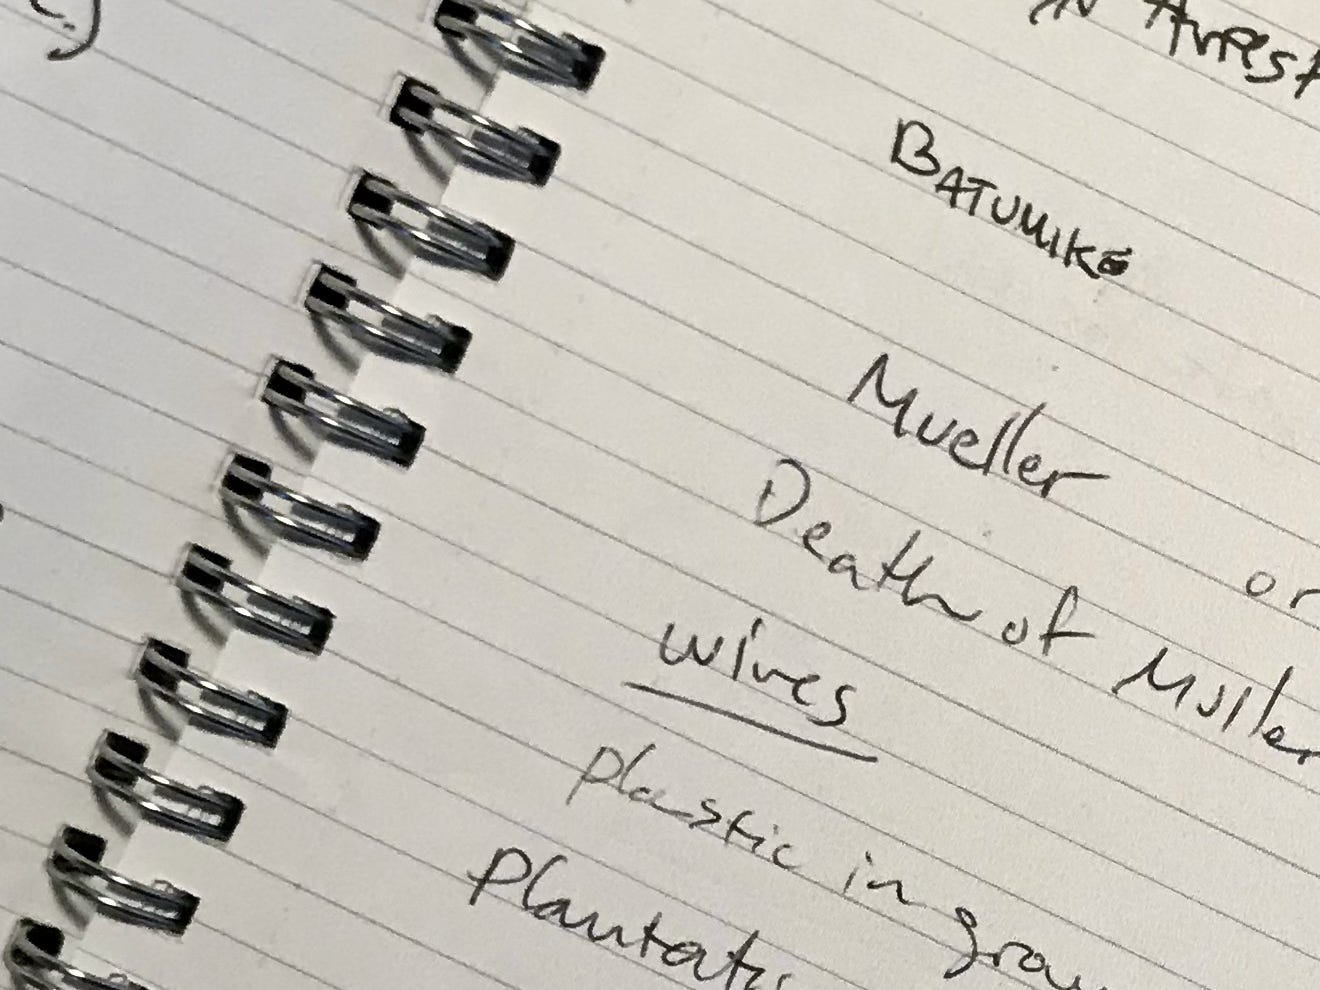 in Arrest
BATUMIKE
Mueller
or
Death of Muller
wives
plastic in grou
Plantatic